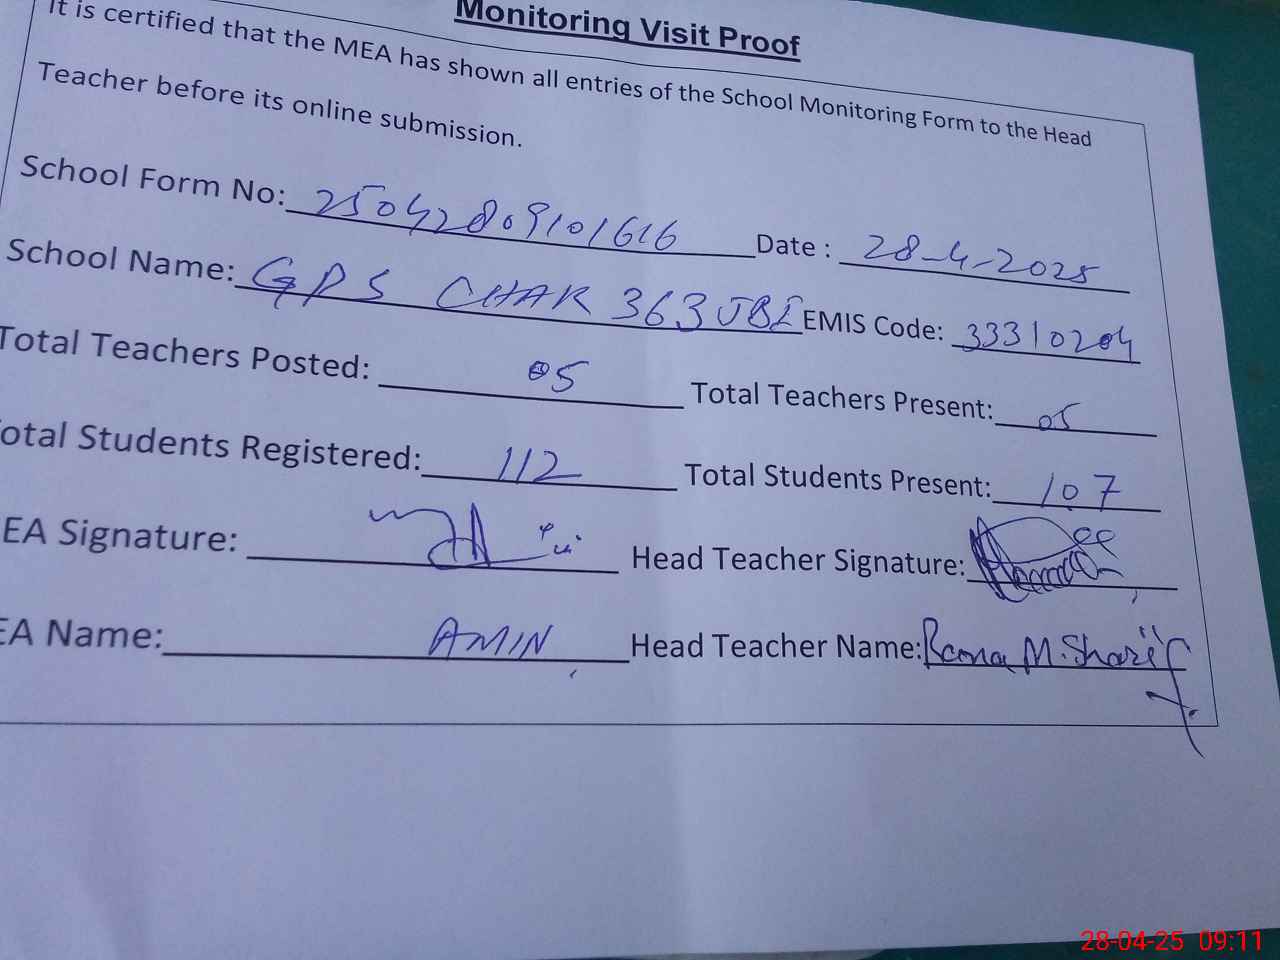 Monitoring Visit Proof
It is certified that the MEA has shown all entries of the School Monitoring Form to the Head
Teacher before its online submission.
School Form No: 25042809101616 Date : 28-4-2025
School Name: GPS CHAK 363 JBI EMIS Code: 33310204
Total Teachers Posted: 05 Total Teachers Present: 05
otal Students Registered: 112 Total Students Present: 107
EA Signature: Head Teacher Signature:
EA Name: AMIN Head Teacher Name: Rana M. Sharif
28-04-25 09:11